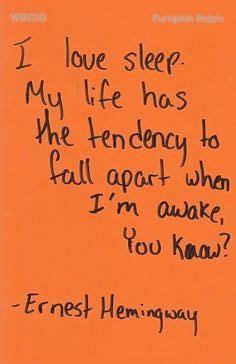 WGO10 Pumpkin Patch
I love sleep.
My life has
the tendency to
fall apart when
I'm awake,
You know?
-Ernest Hemingway